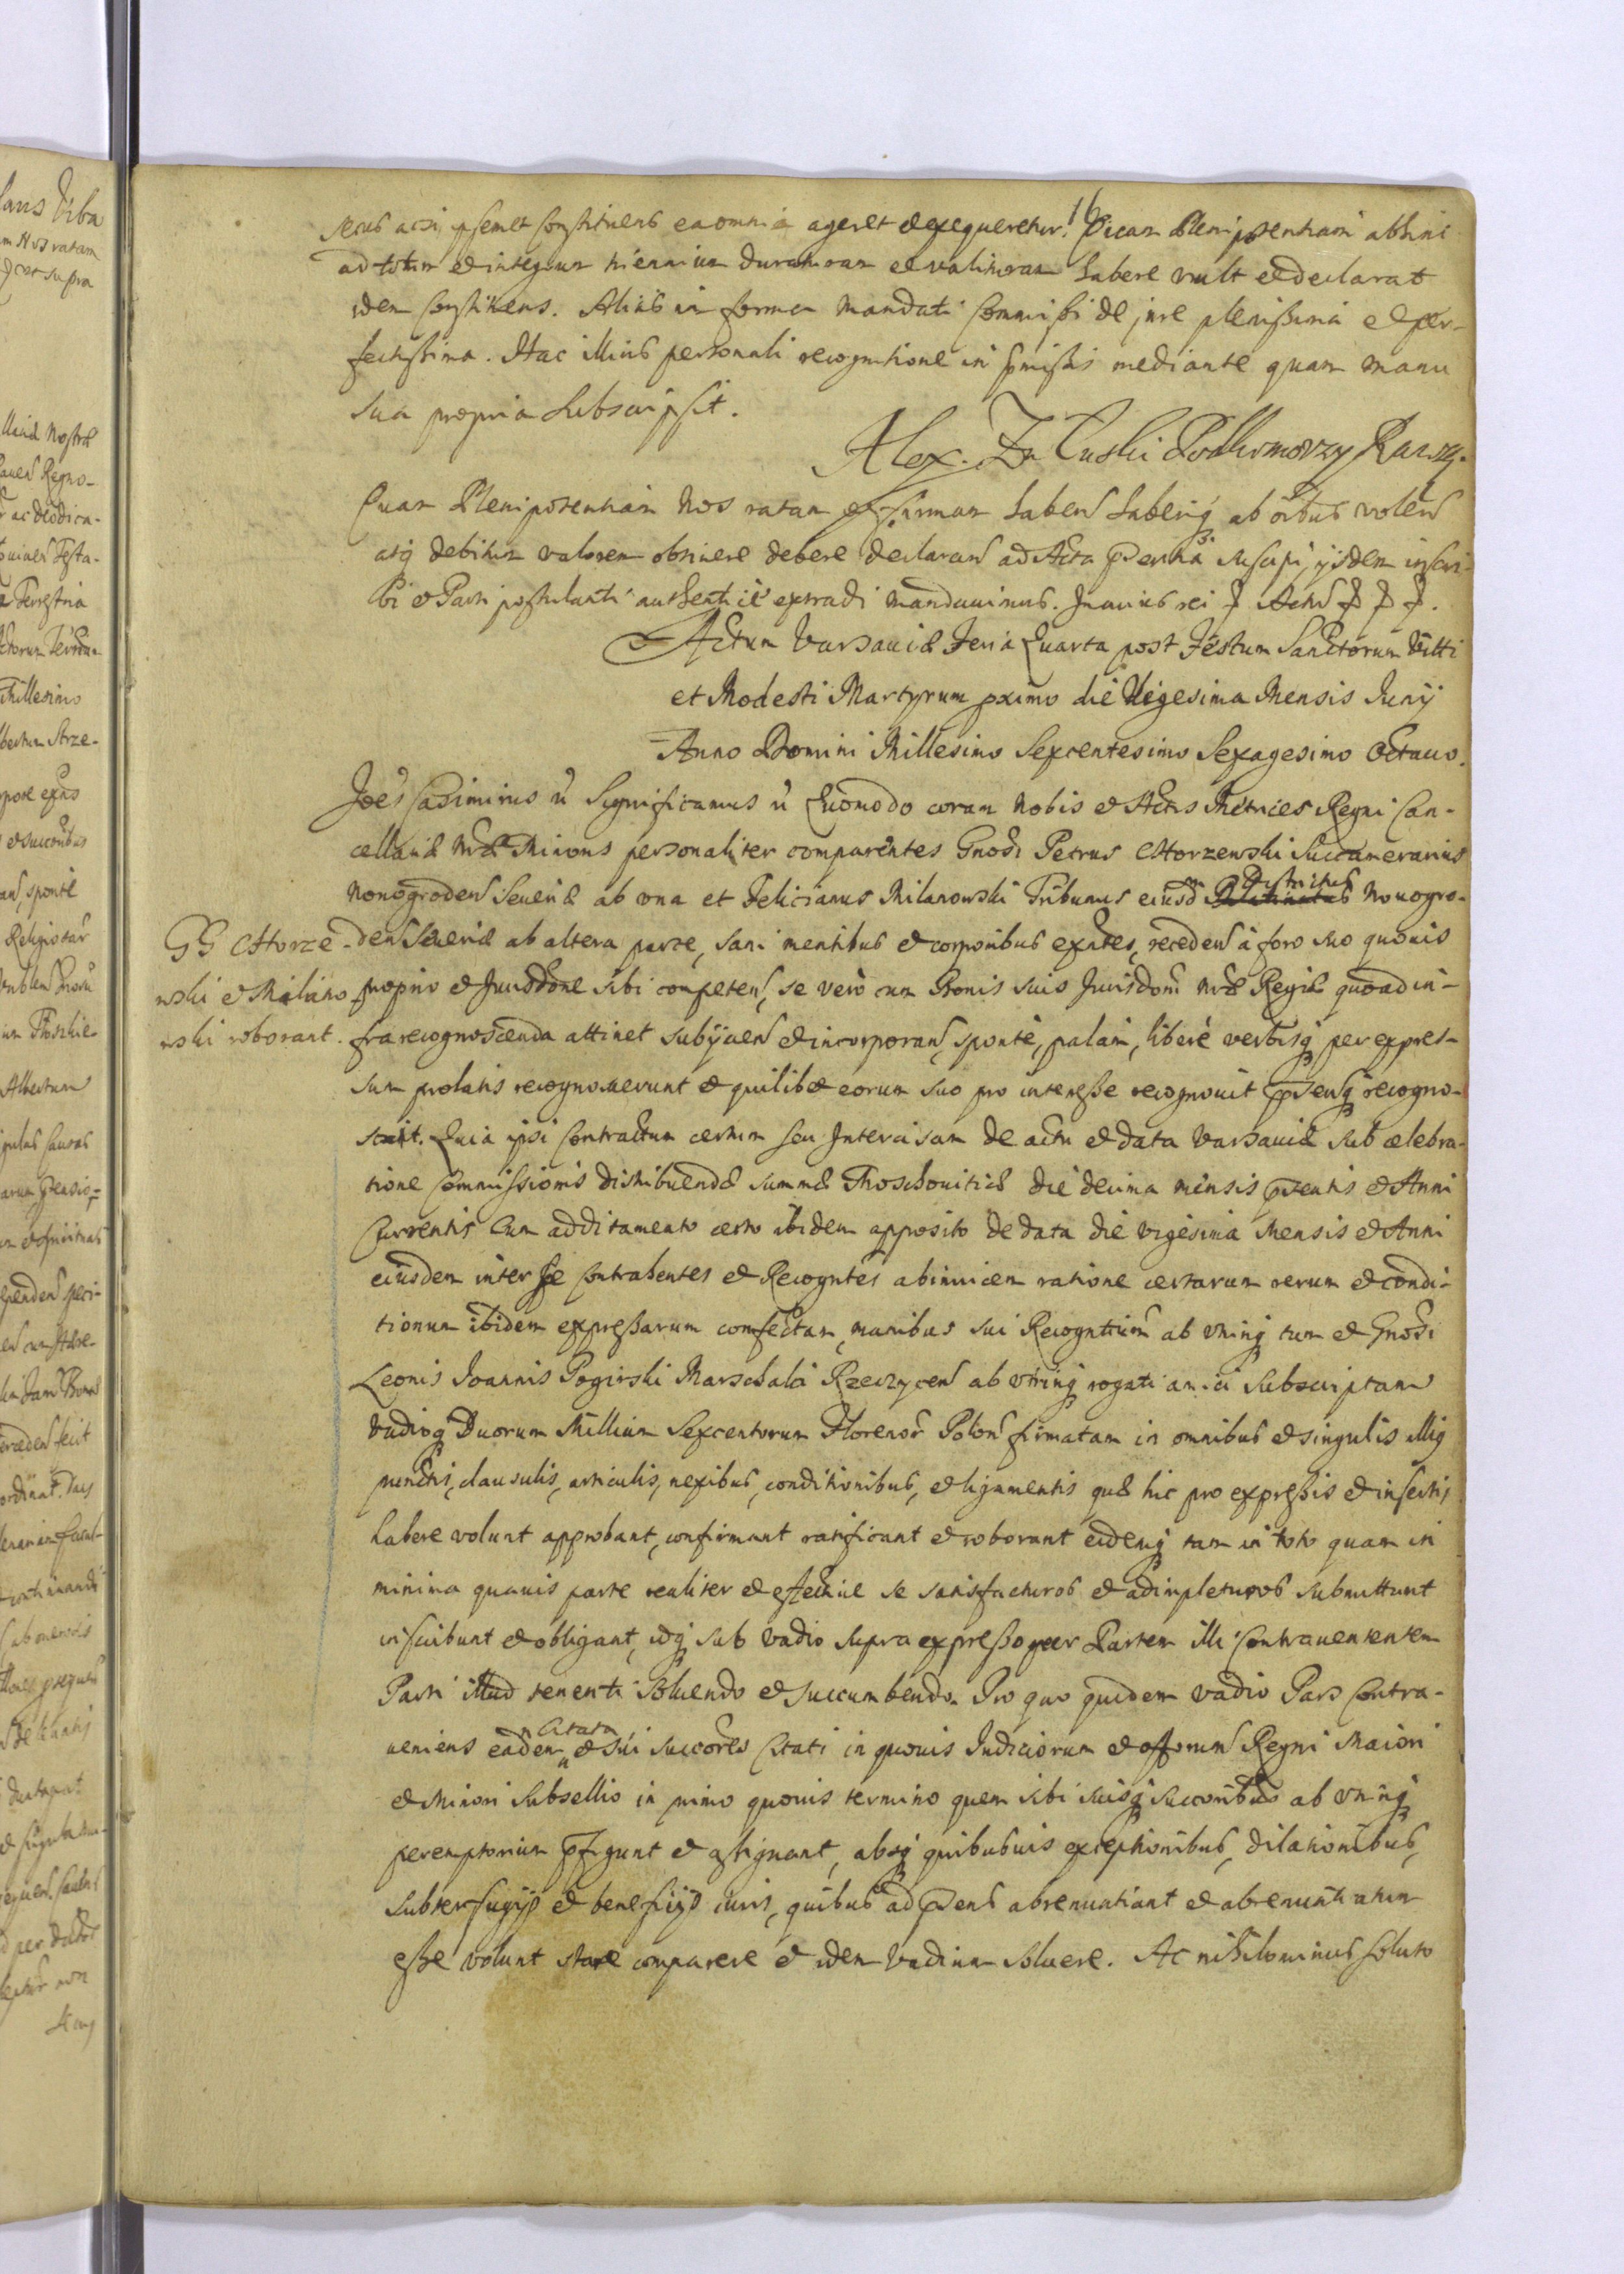 16
secus ac si ipsemet Constituens ea omnia ageret et exequeretur. Quam Plenipotentiam abhinc
ad totum et integrum triennium duraturam et valituram habere vult et declarat
idem Constituens. Alias in forma Mandati Commissi de jure plenissima et per-
fectissima. Hac illius personali recognitione in pmissis mediante quam manu
sua propria subscripsit.
Alex. Załuski Podkomorzy Rawsy.
Quam Plenipotentiam Nos ratam et firmam haben haberiq ab oibus volen
atq debitum valorem obtinere debere declaran ad Acta pntia suscipi, ijsdem inscri-
bi et Parti postulanti authenticè extradi mandavimus. In cuius rei
Actum Varsaviæ Feria Quarta post Festum Sanctorum Vitti
et Modesti Martyrum pximo die Vigesima Mensis Junij
Anno Domini Millesimo Sexcentesimo Sexagesimo Octavo.
Joēs Casimirus Significamus Quomodo coram Nobis et Actis Metrices Regni Can-
cellariæ Nræ Minoris personaliter comparentes Gnosi Petrus Chorzewski Succamerarius
Novogroden Severiæ ab una et Felicianus Milanowski Tribunus eiusd Districtus Novogro-
GG Chorze-
wski et Milano
wski roborant.
den Severiæ ab altera parte, sani mentibus et corporibus exntes, receden à foro suo quovis
proprio et Jurisdone sibi competen, se verò cum Bonis suis Jurisdoni Nræ Regiæ quoad in-
fra recognoscenda attinet subijcien et incorporan, sponte, palam, liberè verbisq per expres-
sum prolatis recognoverunt et quilibet eorum suo pro interesse recognovit pnsenq recogno-
scit. Quia ipsi Contractum certum seu Intercisam de actu et data Varsaviæ sub celebra-
tione Commissionis distribuendæ summæ Moschoviticæ die decima mensis pntis et Anni
Currentis Cum additamento certo ibidem apposito de data die vigesima Mensis et Anni
eiusdem inter se Contrahentes et Recogntes abinvicem ratione certarum rerum et condi-
tionum ibidem expressarum confectam, manibus sui Recogntium ab utrinq tum et Gnosi
Leonis Joannis Pogirski Marschalci Rzeczycen ab utrinq rogati amici subscriptam
Vadioq Duorum Millium Sexcentorum Florenor Polon firmatam in omnibus et singulis illiq
punctis, clausulis, articulis, nexibus, conditionibus, et ligamentis quæ hic pro expressis et insertis
habere volunt approbant, confirmant ratificant et roborant eidemq tam in toto quam in
minima quavis parte realiter et effectivè se satisfacturos et adimpleturos submittunt
inscribunt et obligant, idq sub Vadio supra expresso per Partem illi Contravenientem
Parti illud tenenti solvendo et succumbendo. Pro quo quidem vadio Pars Contra-
veniens eadem citata et sui succōres Citati in quovis Judiciorum et offorum Regni Maiori
et Minori Subsellio in primo quovis termino quem sibi suisq succoribus ab utrinq
peremptorium pfigunt et assignant, absq quibusvis exceptionibus, dilationibus,
subterfugijs et beneficijs iuris, quibus ad pnsens abrenuntiant et abrenuntiatum
esse volunt stare comparere et idem Vadium solvere. Ac nihilominus soluto